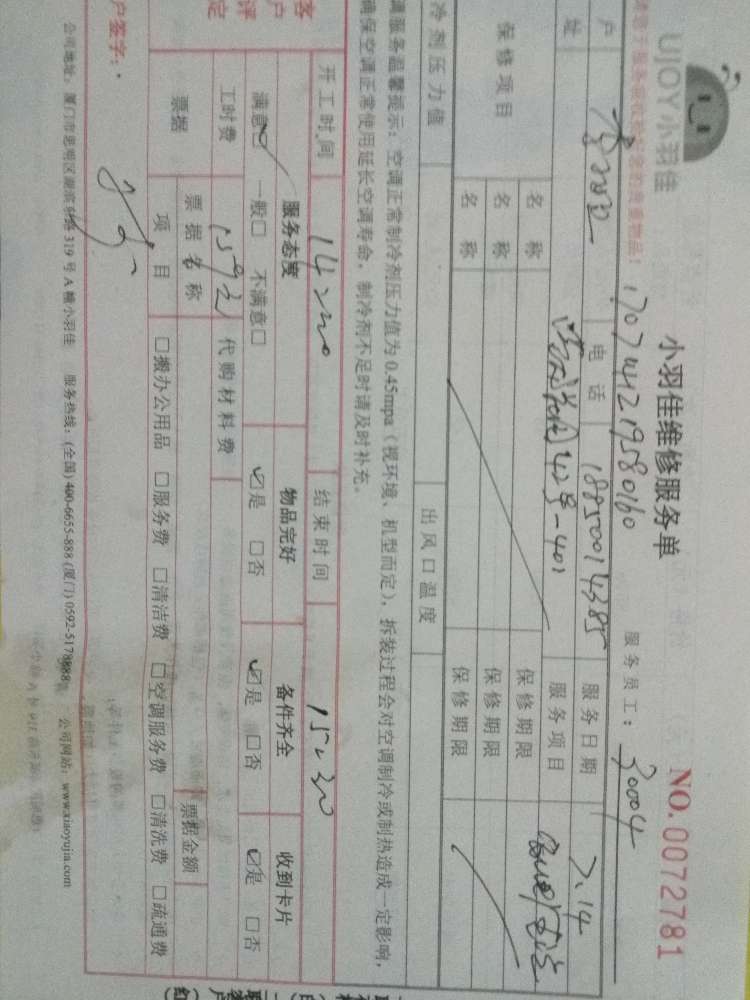 UJOY小羽佳
小羽佳维修服务单
NO.0072781
170744219580160
服务员工：30004
户
电话
18850014385
服务日期
7.14
址
42号-401
服务项目
保修项目
名称
保修期限
名称
保修期限
名称
保修期限
冷剂压力值
出风口温度
调服务温馨提示：空调正常制冷剂压力值为0.45mpa（视环境、机型而定），拆装过程会对空调制冷或制热造成一定影响，
确保空调正常使用延长空调寿命，制冷剂不足时请及时补充。
开工时间
14:20
结束时间
15:30
客户评定
服务态度
物品完好
备件齐全
收到卡片
满意☑ 一般□ 不满意□
☑是 □否
☑是 □否
☑是 □否
工时费
159元
代购材料费
票据
票据名称
票据金额
项目
□搬办公用品 □服务费 □清洁费 □空调服务费 □清洗费 □疏通费
户签字：
公司地址：厦门市思明区湖滨
319号A幢小羽佳
服务热线：(全国) 400-6655-888 (厦门) 0592-5178888
公司网站：www.xiaoyujia.com